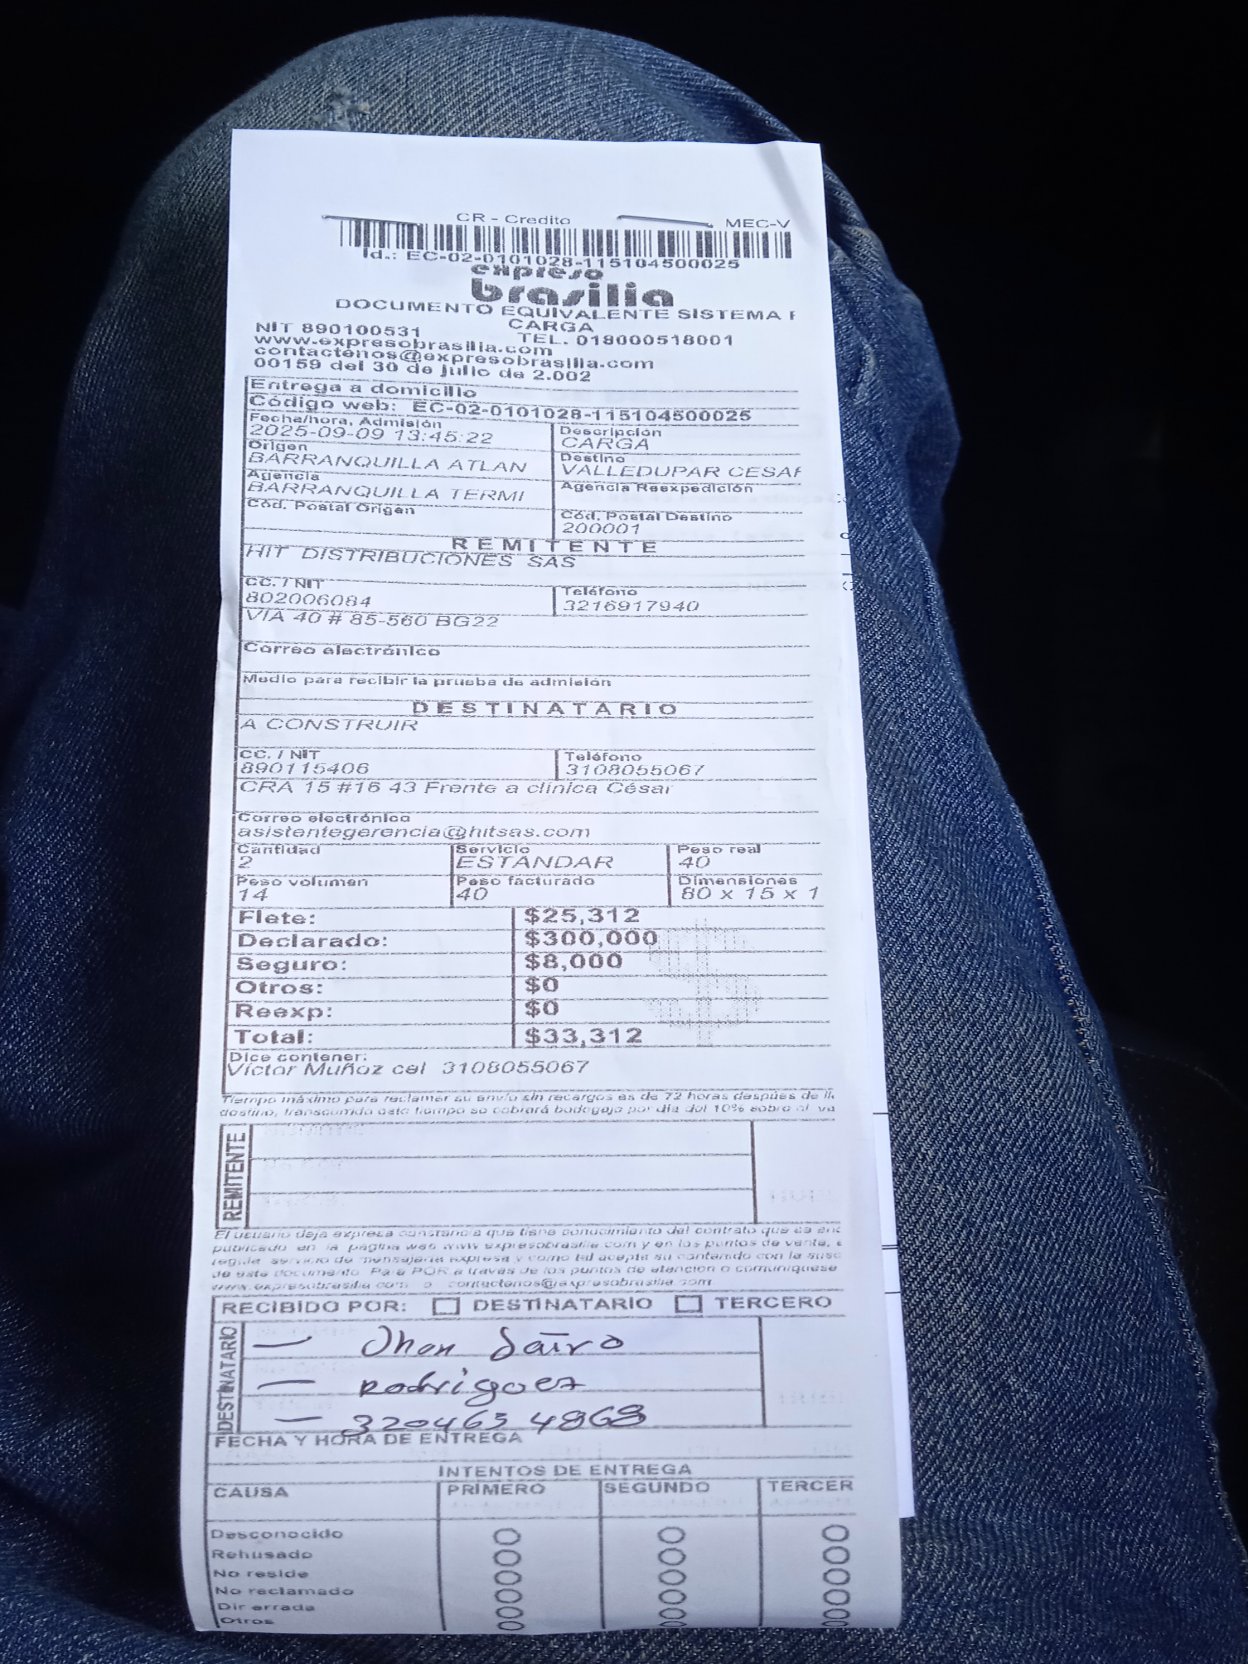 CR - Credito MEC-V
Id.: EC-02-0101028-115104500025
expreso
brasilia
DOCUMENTO EQUIVALENTE SISTEMA
CARGA
NIT 890100531 TEL. 018000518001
www.expresobrasilia.com
contactenos@expresobrasilia.com
00159 del 30 de julio de 2.002
Entrega a domicilio
Código web: EC-02-0101028-115104500025
Fecha/hora, Admisión Descripción
2025-09-09 13:45:22 CARGA
Origen Destino
BARRANQUILLA ATLAN VALLEDUPAR CESAR
Agencia Agencia Reexpedición
BARRANQUILLA TERMI
Cód. Postal Origen Cód. Postal Destino
200001
REMITENTE
HIT DISTRIBUCIONES SAS
CC. / NIT Teléfono
802006084 3216917940
VIA 40 # 85-560 BG22
Correo electrónico
Medio para recibir la prueba de admisión
DESTINATARIO
A CONSTRUIR
CC. / NIT Teléfono
890115406 3108055067
CRA 15 #16 43 Frente a clinica César
Correo electrónico
asistentegerencia@hitsas.com
Cantidad Servicio Peso real
2 ESTANDAR 40
Peso volumen Peso facturado Dimensiones
14 40 80 x 15 x 1
Flete: $25,312
Declarado: $300,000
Seguro: $8,000
Otros: $0
Reexp: $0
Total: $33,312
Dice contener:
Victor Muñoz cel 3108055067
Tiempo máximo para reclamar su envío sin recargos es de 72 horas después de
destino, transcurrido este tiempo se cobrará bodegaje por día del 10% sobre el va
REMITENTE
El usuario deja expresa constancia que tiene conocimiento del contrato que se enc
publicado en la página web www.expresobrasilia.com y en los puntos de venta,
regula servicio de mensajería expresa y como tal acepta su contenido con la susc
de este documento. Para PQR a través de los puntos de atención o comuníquese
www.expresobrasilia.com o contactenos@expresobrasilia.com
RECIBIDO POR: DESTINATARIO TERCERO
DESTINATARIO
— Jhon Jairo
— Rodriguez
— 320465 4868
FECHA Y HORA DE ENTREGA
INTENTOS DE ENTREGA
CAUSA PRIMERO SEGUNDO TERCER
Desconocido
Rehusado
No reside
No reclamado
Dir errada
Otros